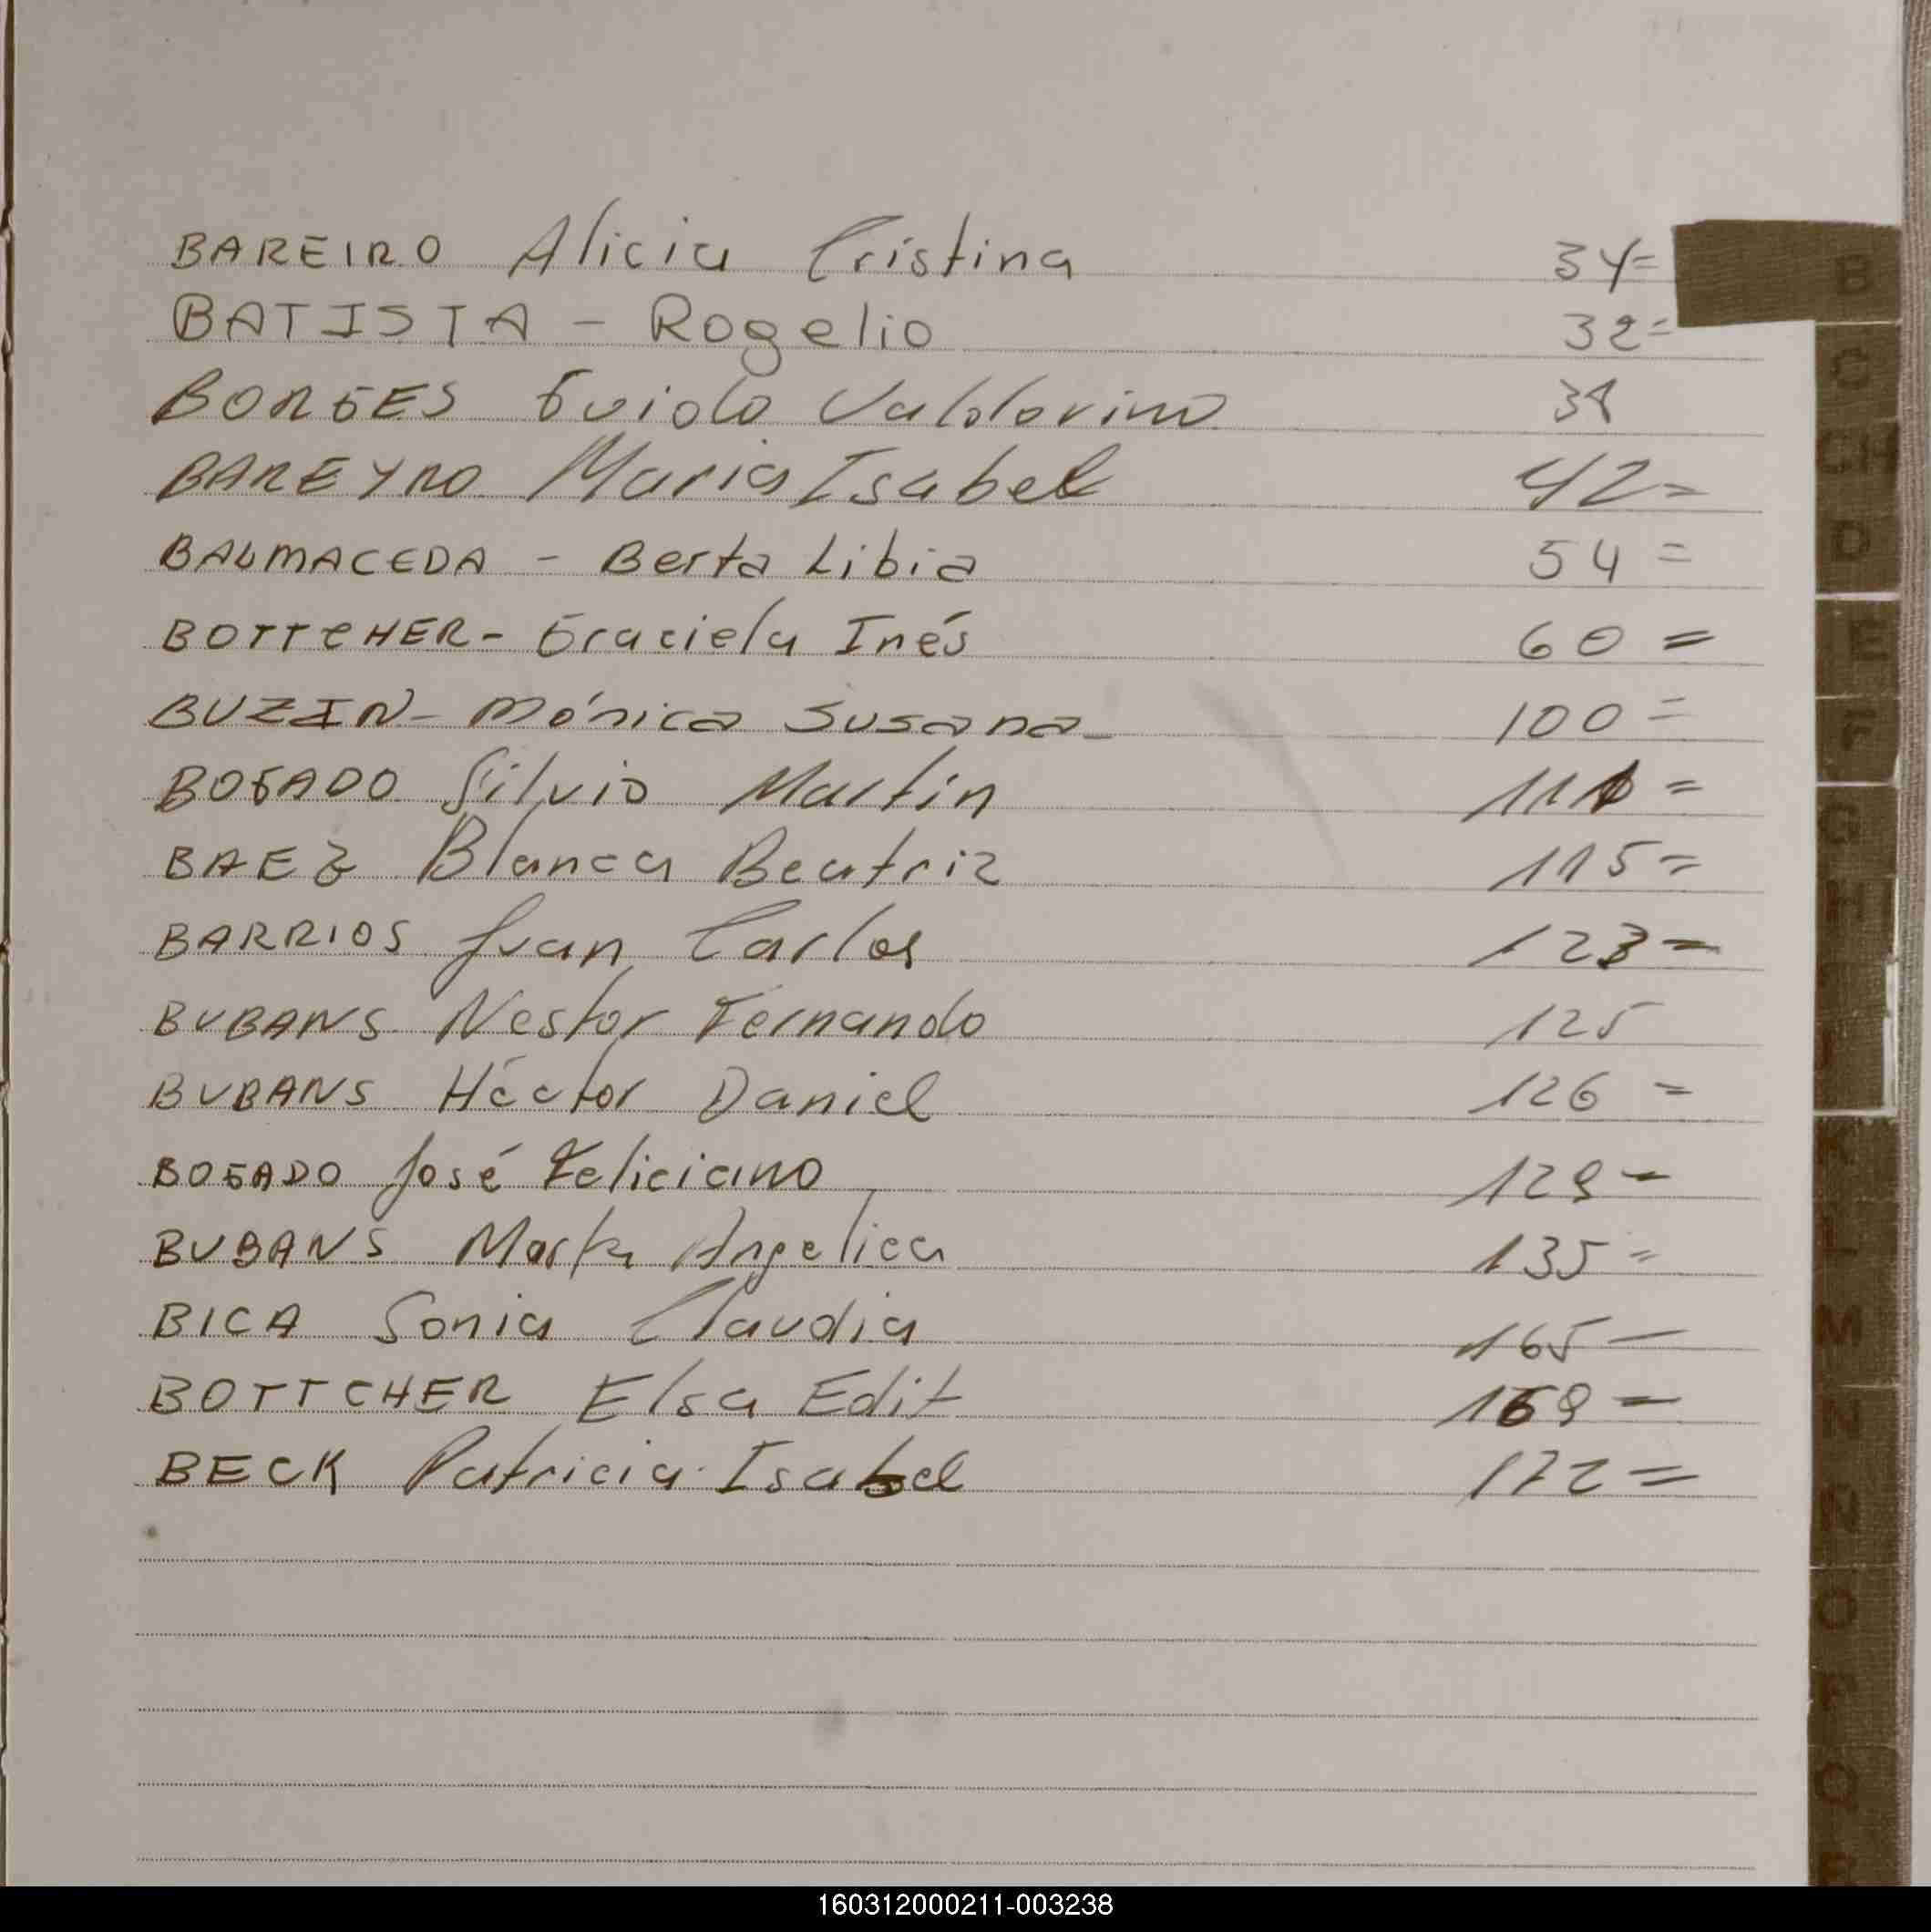 BAREIRO Alicia Cristina 34=
BATISTA - Rogelio 32=
BORGES Guido Valdovino
BAREYRO Maria Isabel 42=
BALMACEDA - Berta Libia 54=
BOTTCHER - Graciela Inés 60=
BUZIN - Mónica Susana - 100=
BOGADO Silvio Martin =
BAEZ Blanca Beatriz 115=
BARRIOS Juan Carlos 123=
BUBANS Nestor Fernando 125
BUBANS Héctor Daniel 126=
BOGADO José Feliciano 129-
BUBANS Marta Angelica 135=
BICA Sonia Claudia 165-
BOTTCHER Elsa Edit 169=
BECK Patricia Isabel 172=
B
C
CH
D
E
F
G
H
I
J
K
L
M
N
Ñ
O
P
Q
R
160312000211-003238